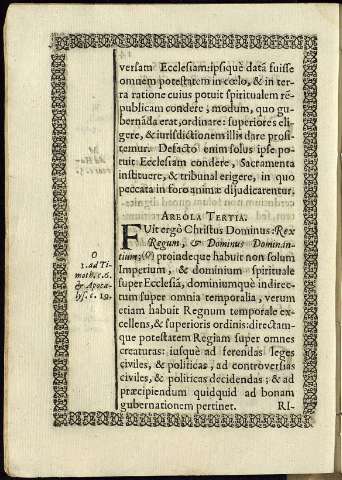 versam Ecclesiam: ipsiquè datã fuisse
omnem potestatem in cœlo, & in ter-
ra ratione cuius potuit spiritualem rẽ-
publicam condere; modum, quo gu-
bernãda erat, ordinare: superiores eli-
gere, & iurisdictionem illis dare profi-
temur. De facto enim solus ipse po-
tuit Ecclesiam condere, Sacramenta
instituere, & tribunal erigere, in quo
peccata in foro animæ dijudicarentur.
AREOLA TERTIA.
FUit ergò Christus Dominus: Rex
Regum, & Dominus Dominan-
tium; (O) proindeque habuit non solum
Imperium, & dominium spirituale
super Ecclesiã, dominiumquè indirec-
tum super omnia temporalia, verum
etiam habuit Regnum temporale ex-
cellens, & superioris ordinis: directam-
que potestatem Regiam super omnes
creaturas: iusquè ad ferendas leges
civiles, & politicas, ad controversias
civiles, & politicas decidendas; & ad
præcipiendum quidquid ad bonam
gubernationem pertinet.
RI-
O
1. ad Ti-
moth. c. 6.
& Apoca-
lys. c. 19.